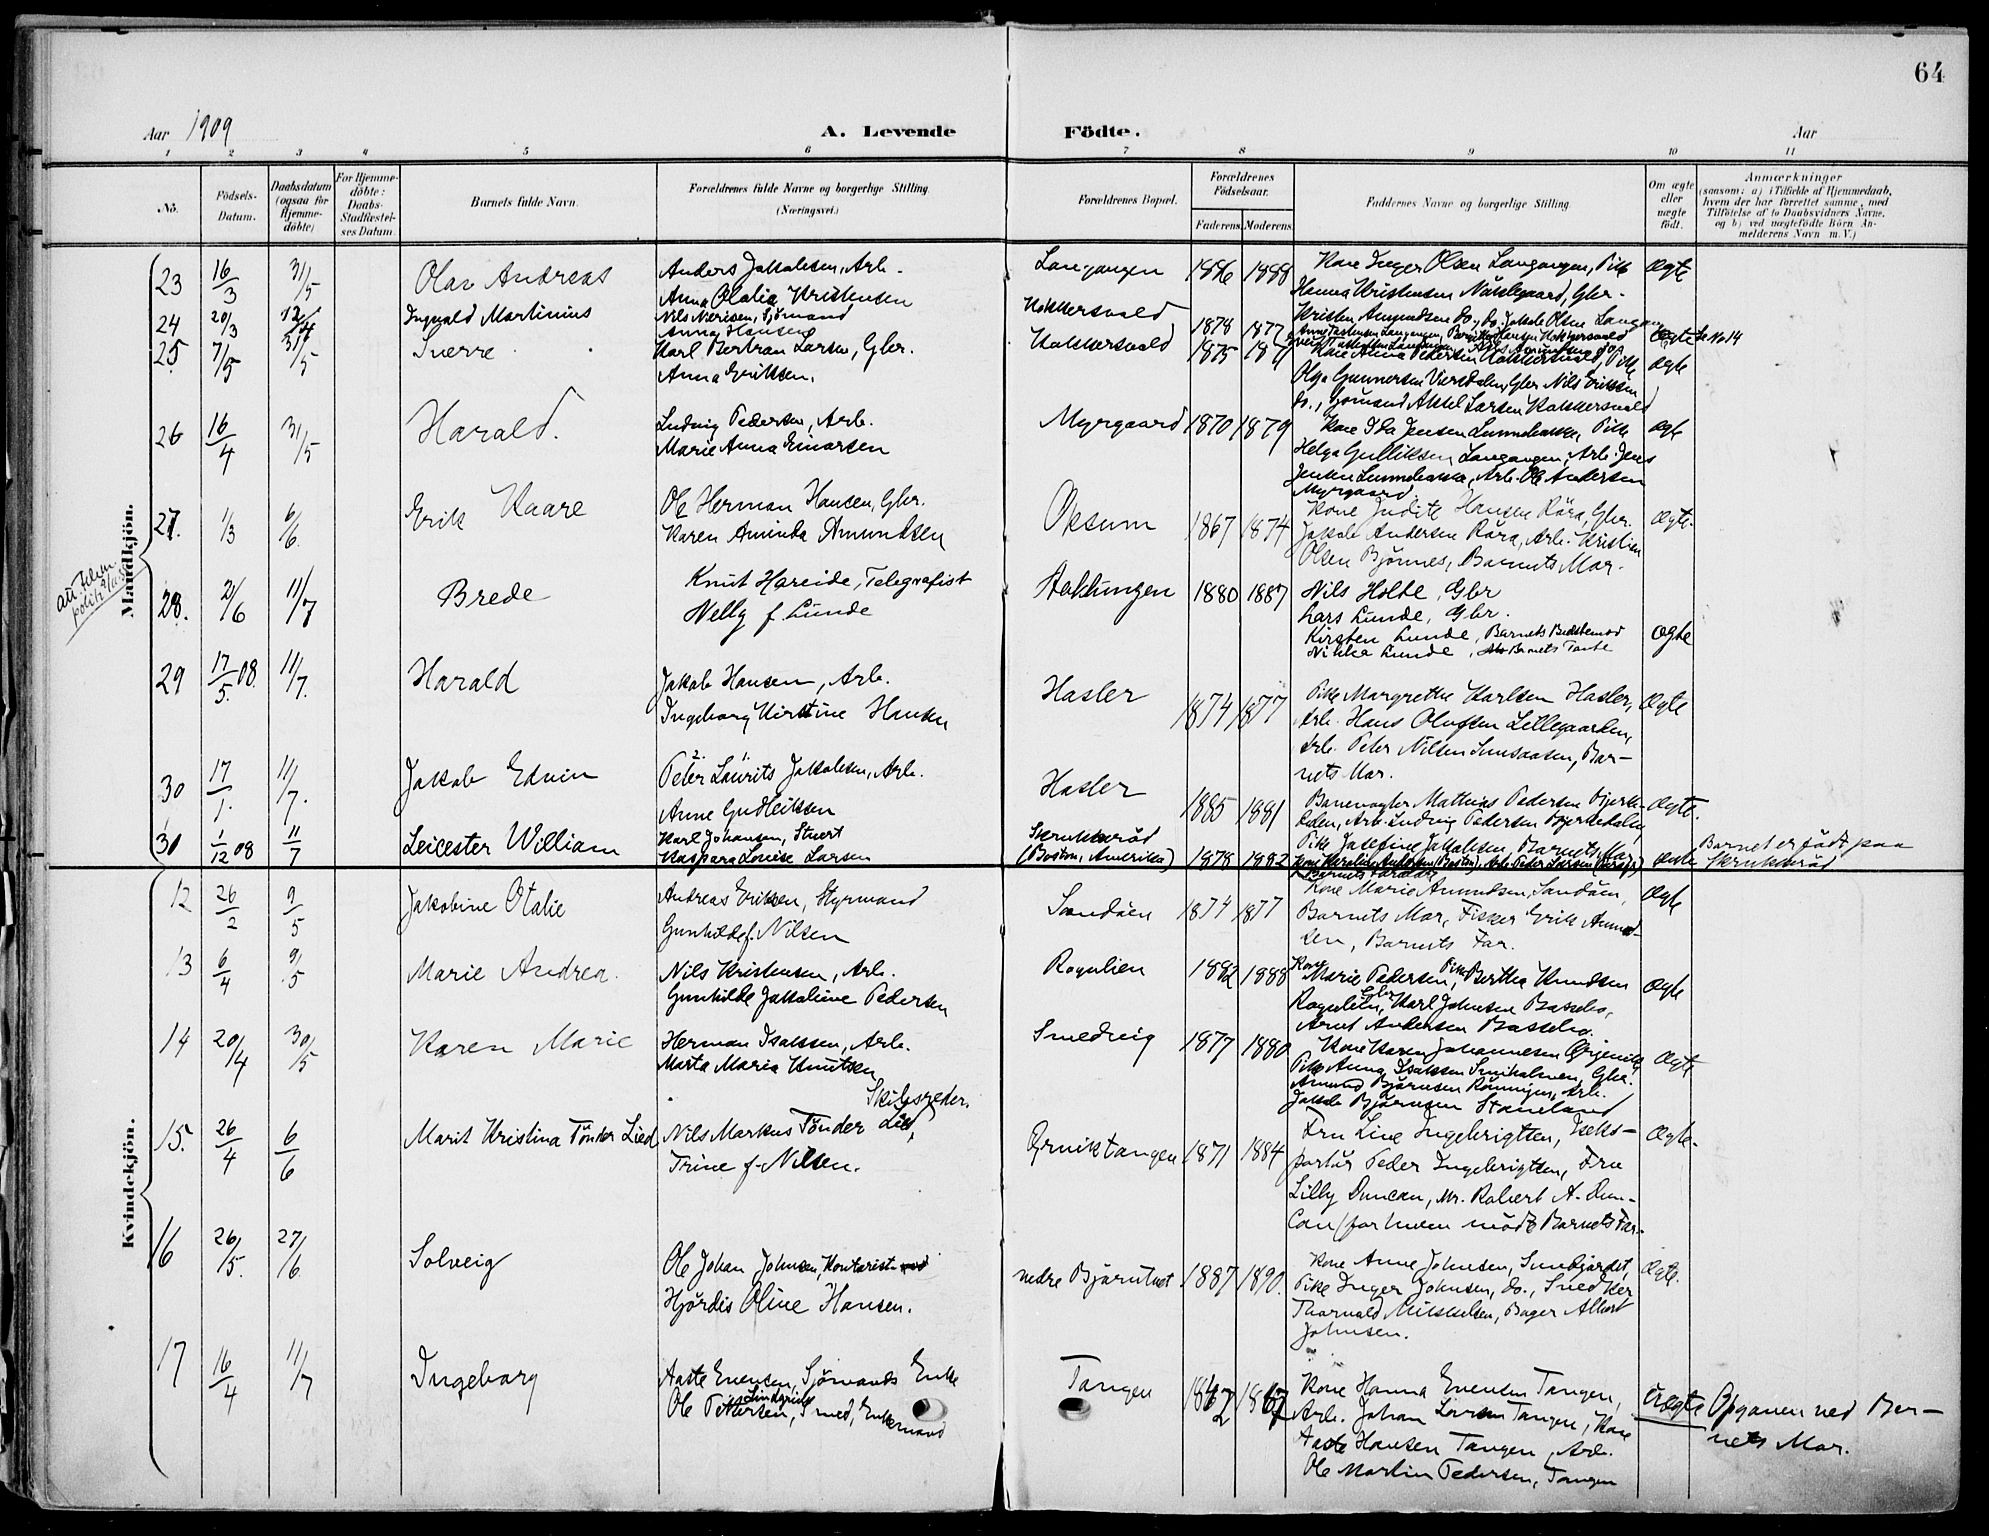 64
Aar 1909
A. Levende
Födte.
Aar
1 2 3 4 5 6 7 8 9 10 11
No.
Födsels-
Datum.
Daabsdatum
(ogsaa for
Hjemme-
döbte)
For Hjemme-
döbte:
Daabs-
Stadfæstel-
ses Datum.
Barnets fulde Navn.
Forældrenes fulde Navne og borgerlige Stilling.
(Næringsvei.)
Forældrenes Bopæl.
Forældrenes
Födselsaar.
Faderens. Moderens.
Faddernes Navne og borgerlige Stilling
Om ægte
eller
uægte
födt.
Anmærkninger
(saasom: a) i Tilfælde af Hjemmedaab,
hvem der har forrettet samme, med
Tilföielse af to Daabsvidners Navne,
og b) ved uægtefödte Börn An-
melderens Navn m. V.)
Mandkjön.
23 16/3 31/5 Olav Andreas
Anders Jakobsen, Arb.
Anna Olalia Kristensen
Langangen 1886 1888
Kone Inger Olsen Langangen, Pike
Hanna Kristensen Nöklegaard, Gbr.
Ægte
24 20/3 Ingvald Martinius
Sjömand
Anna Hansen
Kokkersvold 1878 1877
Kristen Amundsen do., do. Jakob Olsen Langangen
Ægte Se No 14
25 7/5 31/5 Sverre
Karl Bertran Larsen, Gbr.
Anna Eriksen.
Kokkersvold 1875
Kone Anna Pedersen Kokkersvold, Pike
Olga Gunnersen Viersdalen, Gbr Nils Eriksen
do., Sjömand Aksel Larsen Kokkersvold
Ægte
26 16/4 31/5 Harald.
Ludvig Pedersen, Arb.
Marie Anna Einarsen
Myrgaard 1870 1879
Kone Ida Jensen Lunnebakke, Pike
Helga Gulliksen Langangen, Arb. Jens
Jensen Lunnebakke, Arb. Ole Andersen
Myrgaard.
Ægte
27. 1/3 6/6 Erik Kaare
Ole Herman Hansen, Gbr.
Karen Aminda Amundsen
Oksum 1867 1874
Kone Judite Hansen Röra, Gbr.
Jakob Andersen Röra, Arb. Kristian
Olsen Bjönnes, Barnets Mor.
Ægte.
28. 2/6 11/7 Brede
Knut Hareide, Telegrafist
Nelly f. Lunde
Stathingen 1880 1887
Nils Holte, Gbr
Lars Lunde, Gbr.
Kirsten Lunde, Barnets Bedstemod
Nikka Lunde, Barnets Tante
Ægte
29 17/5 08. 11/7. Harald
Jakob Hansen, Arb.
Ingeborg Kirstine Hansen
Hasler 1874 1877
Pike Margrethe Karlsen Hasler,
Arb. Hans Olufsen Lillegaarden,
Arb. Peter Nilsen Sunsaasen, Bar-
nets Mor.
Ægte
30 17/1. 11/7. Jakob Edvin
Peter Laurits Jakobsen, Arb.
Anne Gudleiksen
Hasler 1885 1881
Banevogter Mathias Pedersen Bjerke-
dalen, Arb. Ludvig Pedersen Bjerkedalen
Pike Josefine Jakobsen, Barnets Mor
Ægte.
31 1/12 08 11/7 Leicester William
Karl Johansen, Stuert
Kaspara Louise Larsen
Skrukkeröd
(Boston, Amerika) 1878 1882
Kone Karoline Andersen (Boston), Arb. Peder Larsen
Barnets Forældre
Ægte
Barnet er född paa
Skrukkeröd
Kvindekjön.
12 26/2 9/5 Jakobine Otalie
Andreas Eriksen, Styrmand
Gunhilde f. Nilsen
Sandöen 1874 1877
Kone Marie Amundsen, Sandöen,
Barnets Mor, Fisker Erik Amund-
sen, Barnets Far.
Ægte
13 6/4 9/5 Marie Andrea.
Nils Kristensen, Arb.
Gunhilde Jakobine Pedersen
Rognlien 1882 1888
Kone Marie Pedersen, Pike Berthea Knudsen
Rognlien, Gbr Karl Johnsen Bassebo,
Arnt Andersen Bassebo.
Ægte
14 20/4 30/5 Karen Marie
Herman Isaksen, Arb.
Marta Maria Knutsen
Smedvig 1877 1880
Kone Karen Johannesen Örjenvik
Pike Anna Isaksen Smiholmen, Gbr.
Amund Björnsen Rönningen, Arb.
Jakob Björnsen Stamland
Ægte
15. 26/4 6/6 Marit Kristina Tönder Lied
Skibsreder.
Nils Markus Tönder Lied,
Trine f. Nilsen.
Örviktangen 1871 1884
Fru Line Ingebrigtsen, Ekss-
portör Peder Ingebrigtsen, Fru
Lilly Duncan, Mr. Robert A. Dun-
can (for hvem mödte Barnets Far.
Ægte.
16 26/5. 27/6. Solveig
Ole Johan Johnsen, Kontorist
Hjördis Oline Hansen.
nedre Bjørntvet 1887 1890.
Kone Anne Johnsen, Sundjordet,
Pike Inger Johnsen, do., Snedker
Thorvald Mikkelsen, Bager Albert
Johnsen.
Ægte.
17 16/4 11/7 Ingeborg
Aaste Evensen, Sjömands Enke
Ole Pettersen Lindgren, Smed, Enkemand
Tangen 1862 1867
Kone Hanna Evensen Tangen,
Arb. Johan Larsen Tangen, Kone
Aaste Hansen Tangen, Arb.
Ole Martin Pedersen, Tangen
Uægte
Opgaven ved Bar-
nets Mor.